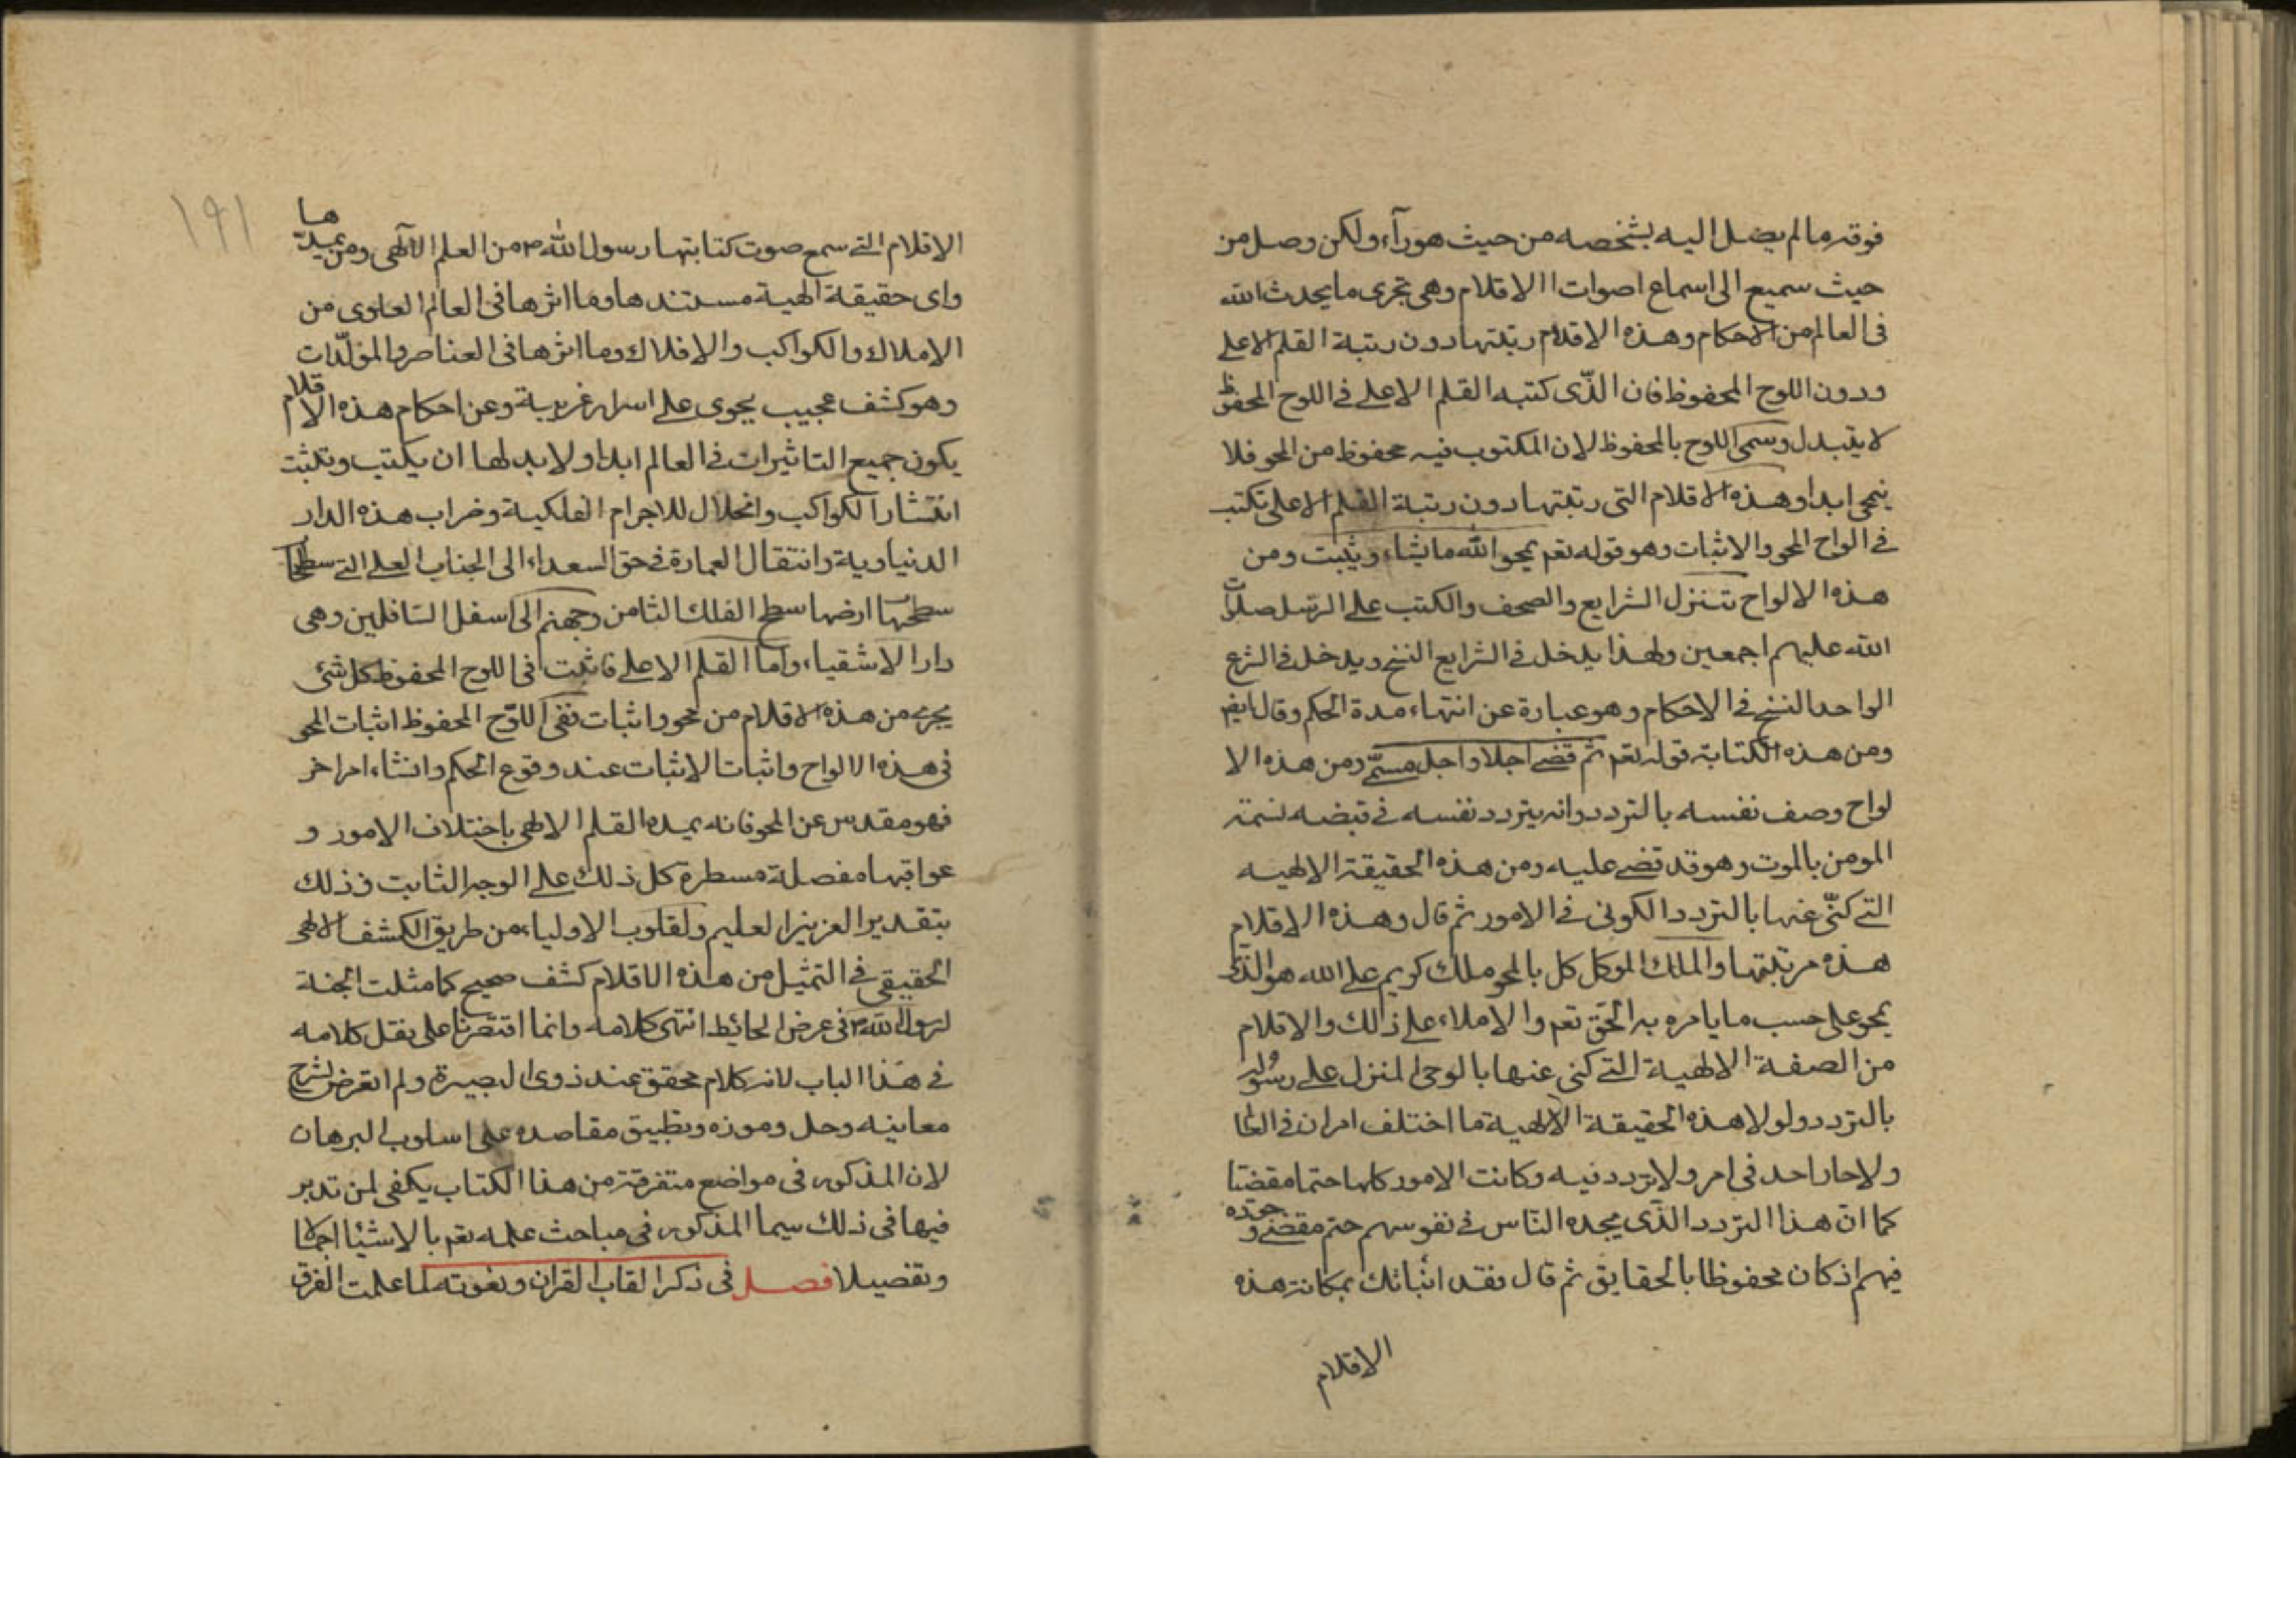 فوقه ما لم يصل اليه بشخصه من حيث هو رآء ولكن وصل من
حيث سميع الى اسماع اصوات الاقلام وهى تجرى ما يحدث الله
فى العالم من الاحكام وهذه الاقلام رتبتها دون رتبة القلم الاعلى
ودون اللوح المحفوظ فان الذّى كتبه القلم الاعلى فى اللوح المحفوظ
لا يتبدل وسمى اللوح بالمحفوظ لان المكتوب فيه محفوظ من المحو فلا
يمحى ابدا وهذه الاقلام التى رتبتها دون رتبة القلم الاعلى تكتب
فى الواح المحو والاثبات وهو قوله تعم يمحو الله ما يشاء ويثبت ومن
هذه الالواح تتنزل الشرايع والصحف والكتب على الرسل صلوات
الله عليهم اجمعين ولهذا يدخل فى الشرايع النسخ ويدخل فى الشرع
الواحد النسخ فى الاحكام وهو عبارة عن انتهاء مدة الحكم وقال ايض
ومن هذه الكتابة قوله تعم ثم قضى اجلا واجل مسمّى ومن هذه الا
لواح وصف نفسه بالتردد وانه يتردد نفسه فى قبضه نسمة
المومن بالموت وهو قد قضى عليه ومن هذه الحقيقة الالهيه
التى كنّى عنها بالتردد الكونى فى الامور ثم قال وهذه الاقلام
هذه مرتبتها والملك الموكل كل بالمحو ملك كريم على الله هو الذى
يمحو على حسب ما يامره به الحق تعم والاملاء على ذالك والاقلام
من الصفة الالهية التى كنى عنها بالوحى المنزل على رسوله
بالتردد ولولا هذه الحقيقة الالهية ما اختلف امران فى العالم
ولاحار احد فى امر ولا تردد فيه وكانت الامور كلها حتما مقضيا
كما ان هذا التردد الذّى يجده النّاس فى نفوسهم حتم مقضى وجوده
فيهم اذ كان محفوظا بالحقايق ثم قال فقد انباتك بمكانة هذه
الاقلام
١٩١
الاقلام التى سمع صوت كتابتها رسول الله ص من العلم الآلهى ومن يمدّها
واى حقيقة الهية مستندها وما اثرها فى العالم العلوى من
الاملاك والكواكب والافلاك وما اثرها فى العناصر والمولّدات
وهو كشف عجيب يحوى على اسرار غريبة وعن احكام هذه الاقلام
يكون جميع التاثيرات فى العالم ابدا ولا بد لها ان يكتب وتثبت
انتشار الكواكب وانحلال للاجرام الفلكية وخراب هذه الدار
الدنياوية وانتقال العمارة فى حق السعداء الى الجناب العلى التى سطحها
سطحها ارضها سطح الفلك الثامن وجهنم الى اسفل السّافلين وهى
دار الاشقياء واما القلم الاعلى فاثبت فى اللوح المحفوظ كل شئ
يجرى من هذه الاقلام من محو واثبات ففى اللوح المحفوظ اثبات المحو
فى هذه الالواح واثبات الاثبات عند وقوع الحكم وانشاء امر اخر
فهو مقدس عن المحو فانه يمده القلم الالهى باختلاف الامور و
عواقبها مفصلة مسطرة كل ذلك على الوجه الثابت فذلك
بتقدير العزيز العليم ولقلوب الاولياء من طريق الكشف الالهى
الحقيقى فى التمثيل من هذه الاقلام كشف صحيح كما مثلت الجنة
لرسول الله ص فى عرض الحائط انتهى كلامه وانما اقتصرنا على نقل كلامه
فى هذا الباب لانه كلام محقق عند ذوى البصيرة ولم اتعرض لشرح
معانيه وحل وموزه وتطبيق مقاصده على اسلوب البرهان
لان المذكور فى مواضع متفرقة من هذا الكتاب يكفى لمن تدبر
فيها فى ذلك سيما المذكور فى مباحث علمه تعم بالاشيئا اجمالا
وتفصيلا فصل فى ذكر القاب القران ونعوته لما علمت الفرق